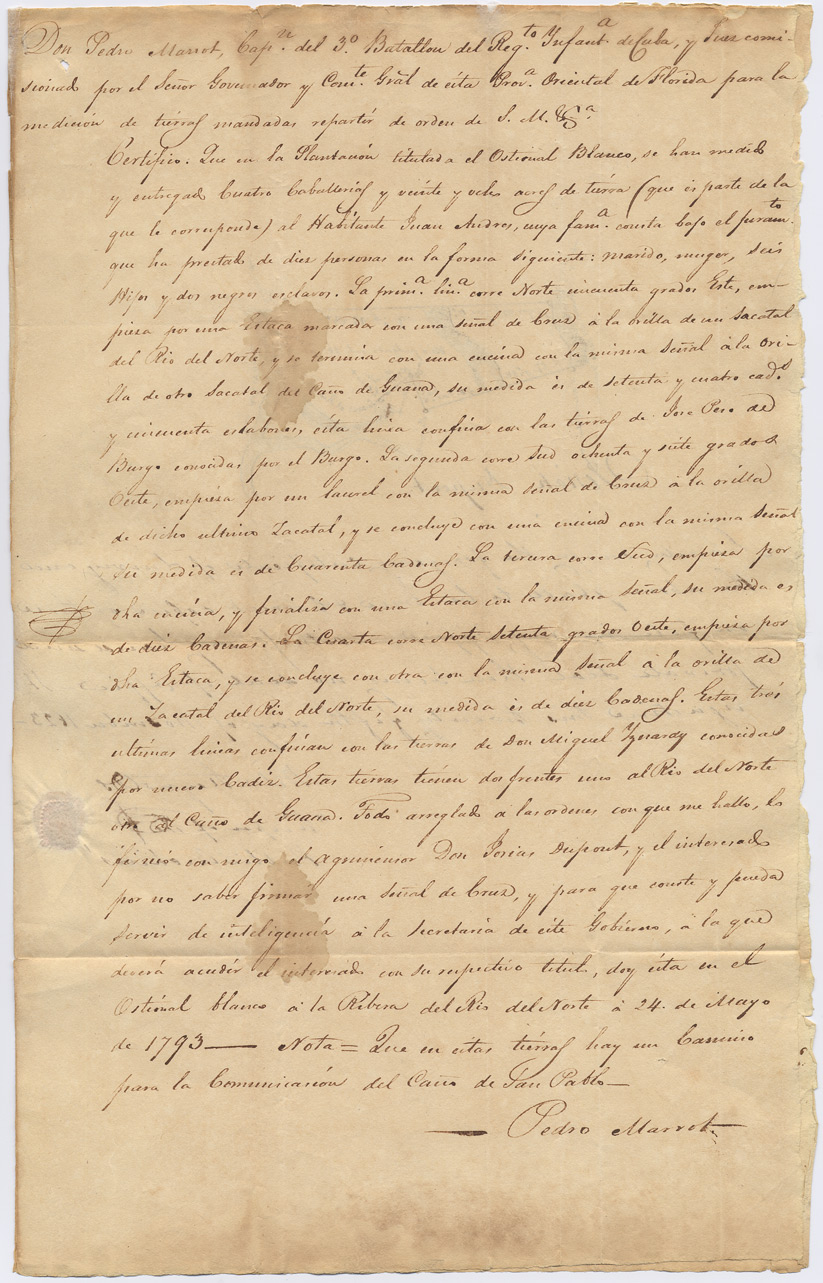 Don Pedro Marrot, Capn. del 3º. Batallon del Regto. Ynfanta. de Cuba, y Juez comi-
sionado por el Señor Governador y Comte. Grāl de ésta Prova. Oriental de Florida para la
medición de tiérras mandadas repartir de orden de S. M. &a.
Certifico. Que en la Plantación titulada el Ostional Blanco, se han medido
y entregado Cuatro Caballerias y veinte y ocho acres de tiérra (que és parte de la
que le corresponde) al Habitante Juan Andres, cuya fama. consta bajo el juramto.
que ha prestado de diez personas en la forma siguiente: marido, muger, seis
Hijos y dos negros esclavos. La prima. lina. corre Norte cincuenta grados Este, em-
piesa por una Estaca marcada con una señal de Cruz à la orilla de un Sacatal
del Rio del Norte, y se termina con una encina con la misma Señal à la ori-
lla de otro Sacatal del Caño de Guana, su medida és de setenta y cuatro cads.
y cincuenta eslabones, ésta linea confina con las tiérras de Jose Peso de
Burgo conocidas por el Burgo. La segunda corre Sud ochenta y siéte grados
Oeste, empiesa por un laurel con la misma señal de Cruz à la orilla
de dicho ultimo Zacatal, y se concluye con una encina con la misma Señal
su medida és de Cuarenta Cadenas. La tercera corre Sud, empiesa por
dha encina, y finaliza con una Estaca con la misma señal, su medida es
de diéz Cadenas. La Cuarta corre Norte Setenta grados Oeste, empiesa por
dha Estaca, y se concluye con otra con la misma señal à la orilla de
un Zacatal del Rio del Norte, su medida és de diez Cadenas. Estas trés
ultimas lineas confinan con las tiérras de Don Miguel Yznardy conocidas
por nuevo Cadiz. Estas tiérras tiénen dos frentes uno al Rio del Norte
otro al Caño de Guana. Todo arreglado à las ordenes con que me hallo, lo
firmó con migo el agrimensor Don Josias Dupont, y el interesado
por no saber firmar una señal de Cruz, y para que conste y pueda
servir de inteligencia à la Secretaria de éste Gobiérno, à la que
deverá acudir el interesado con su respectivo titulo, doy ésta en el
Ostiónal blanco à la Ribera del Rio del Norte à 24. de Mayo
de 1793— Nota= Que en éstas tiérras hay un Camino
para la Comunicasión del Caño de San Pablo—
— Pedro Marrot